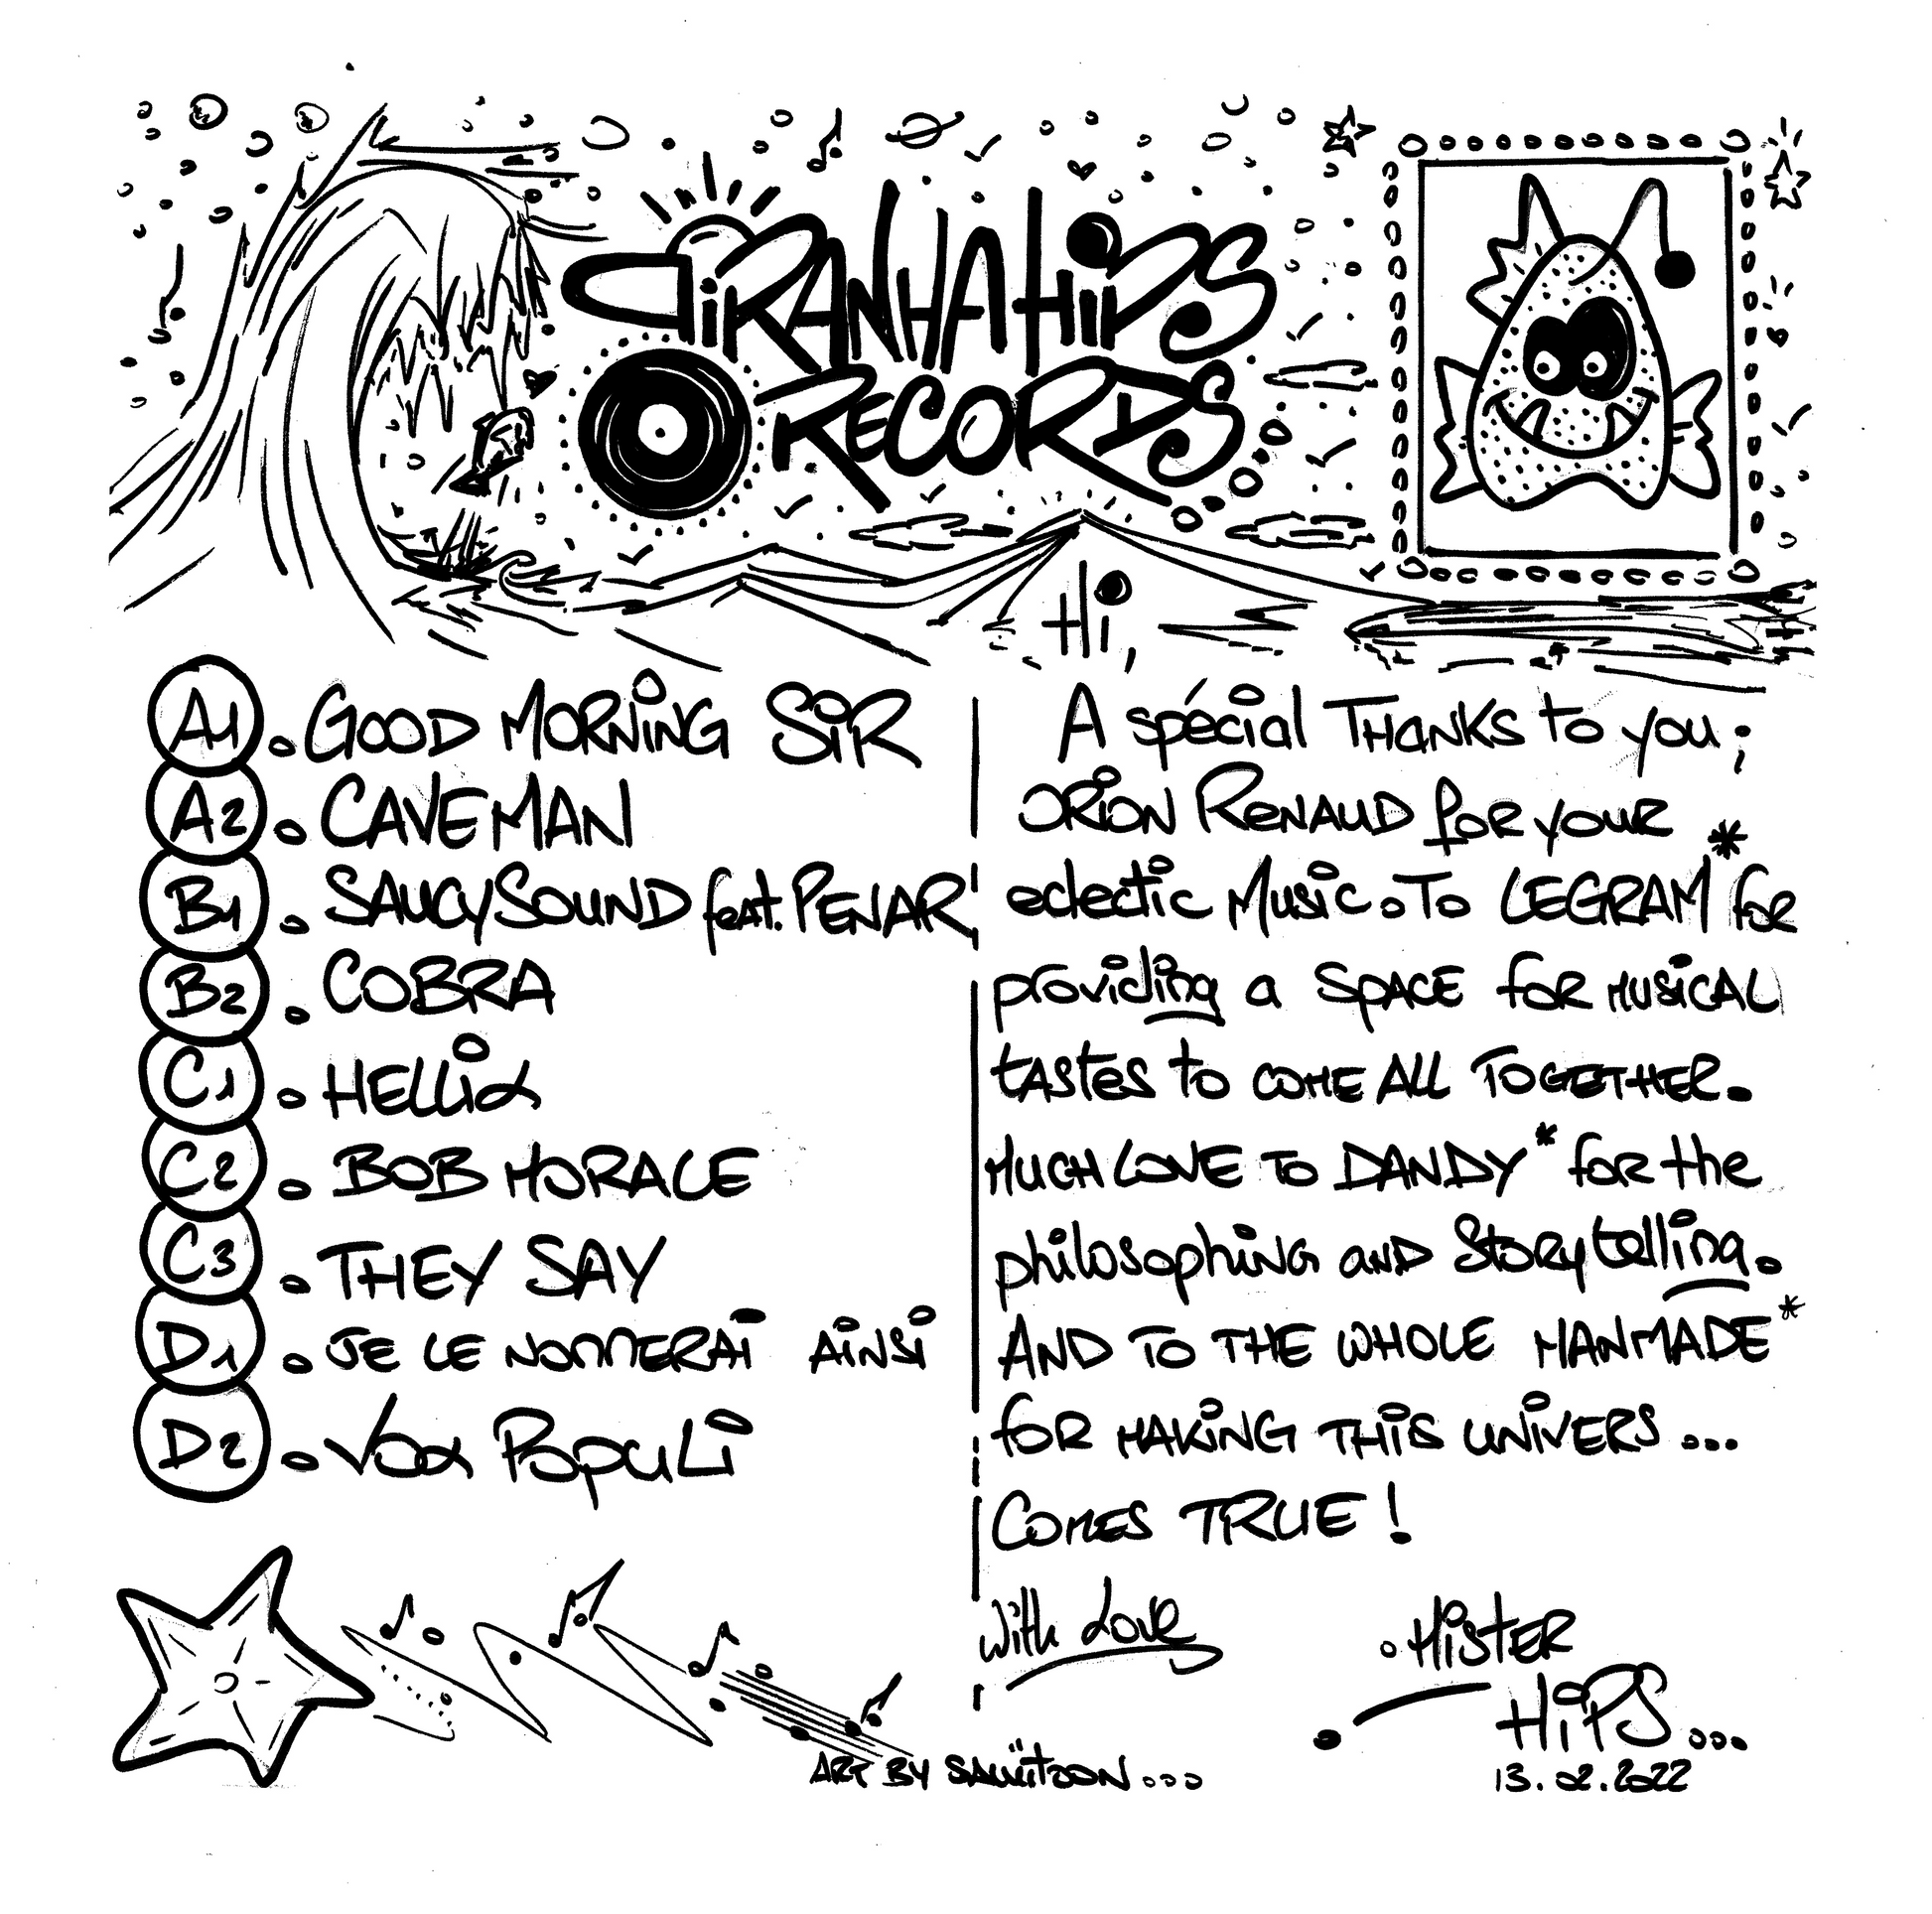 PIRANHAHIPS
RECORDS
Hi,
A1. GOOD MORNING SIR
A2. CAVEMAN
B1. SAUCYSOUND feat. PENAR
B2. COBRA
C1. HELLiX
C2. BOB MORACE
C3. THEY SAY
D1. JE LE NOMMERAi AiNSi
D2. Vox Populi
A spécial THANKS to you;
ORiON RENAUD for your
eclectic Music. To LEGRAM* for
providing a SPACE for MUSiCAL
tastes to COME ALL TOGETHER.
MUCH LOVE TO DANDY* for the
philosophiNG AND Storytelling.
AND TO THE WHOLE MANMADE*
for MAKiNG THiS UNiVERS...
COMES TRUE!
With Love
MisTER
HiPS...
13.02.2022
ART BY SAMÏTOON...